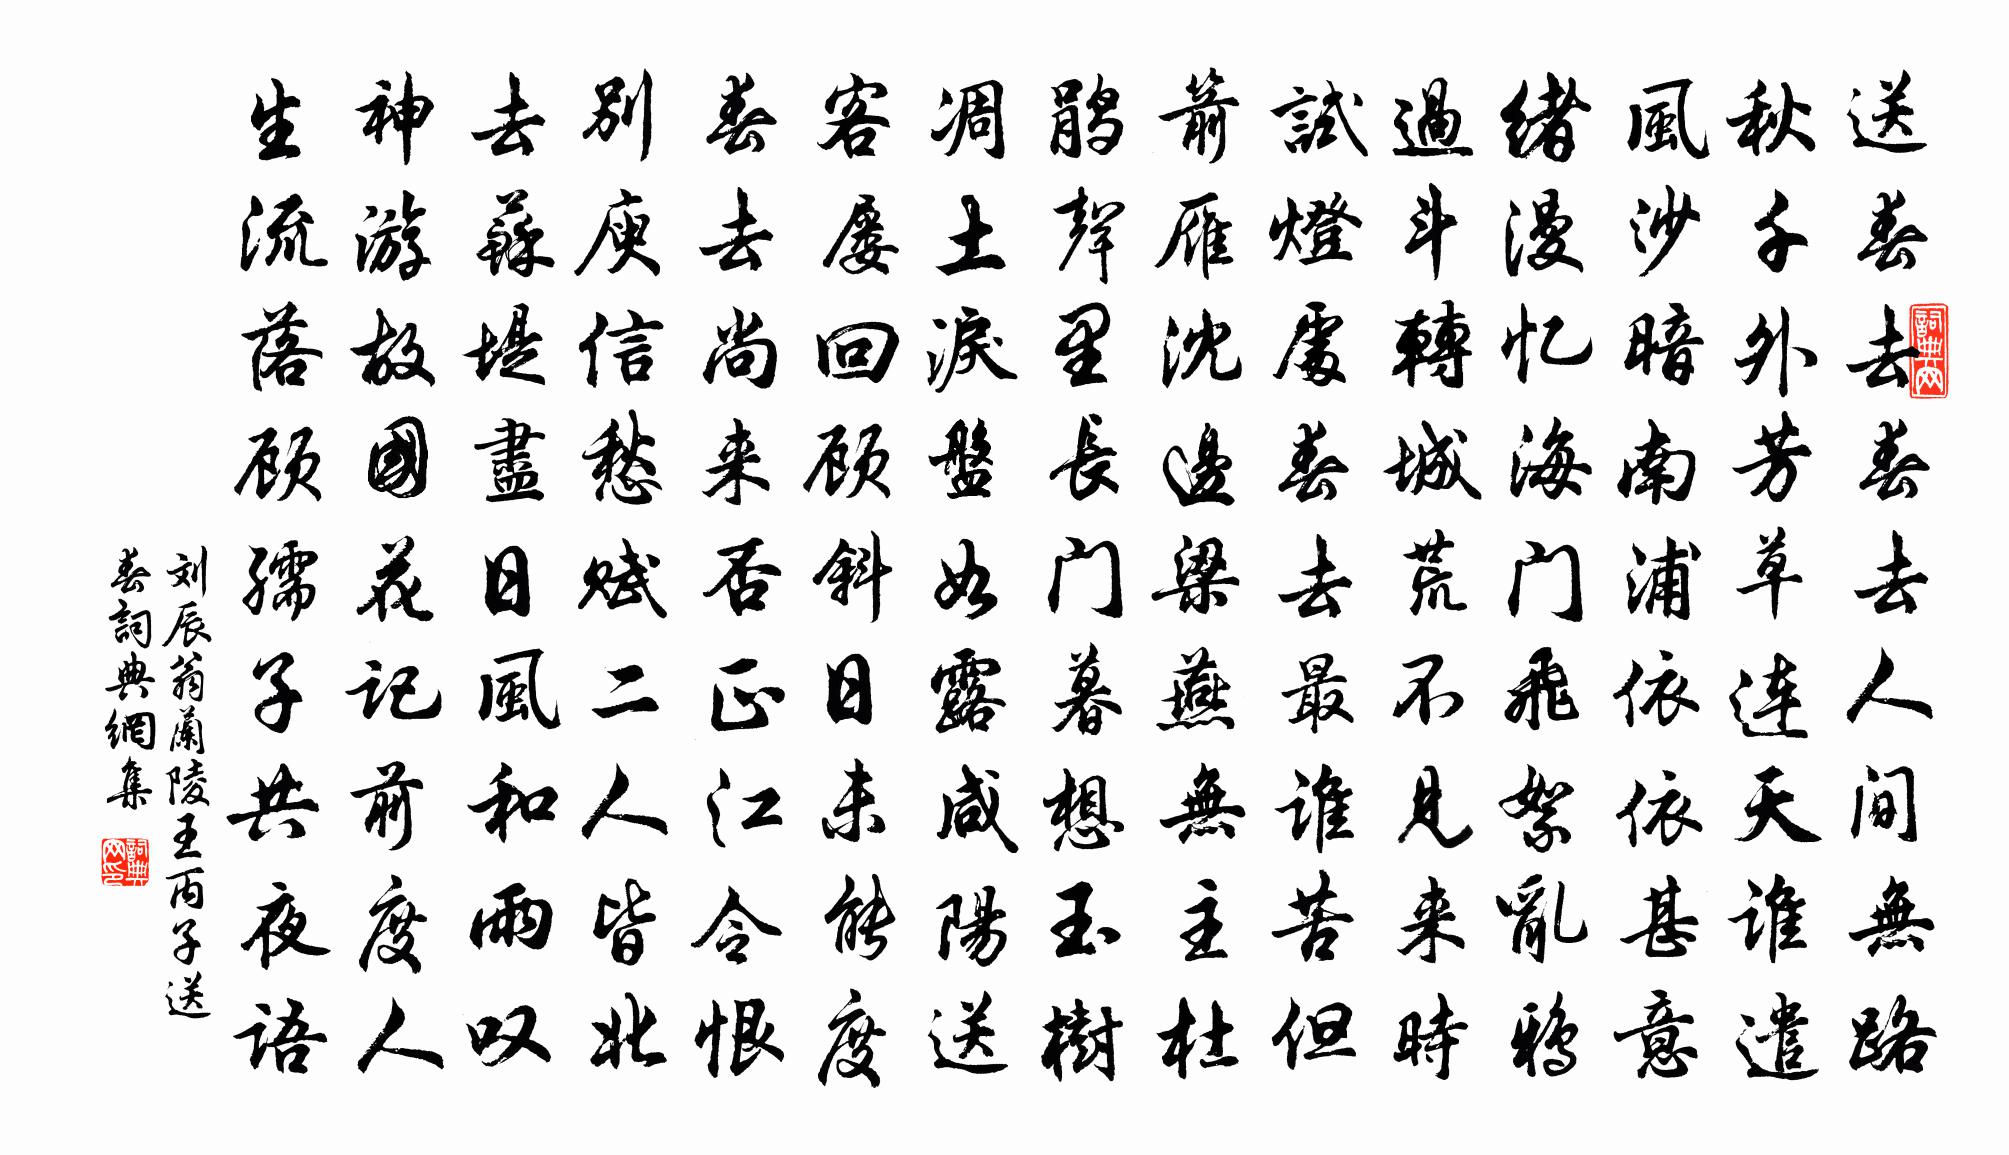 送春去春去人间無路
秋千外芳草連天谁遣
風沙暗南浦依依甚意
绪漫忆海门飛絮亂鴉
過斗轉城荒不見来時
試燈處春去最谁苦但
箭雁沈邊梁燕無主杜
鹃聲里長门暮想玉樹
凋土淚盤如露咸陽送
客屡回顾斜日未能度
春去尚来否正江令恨
别庾信愁赋二人皆北
去蘇堤盡日風和雨叹
神游故國花记前度人
生流落顾孺子共夜语
刘辰翁蘭陵王丙子送
春詞典網集
詞典网
詞典网印